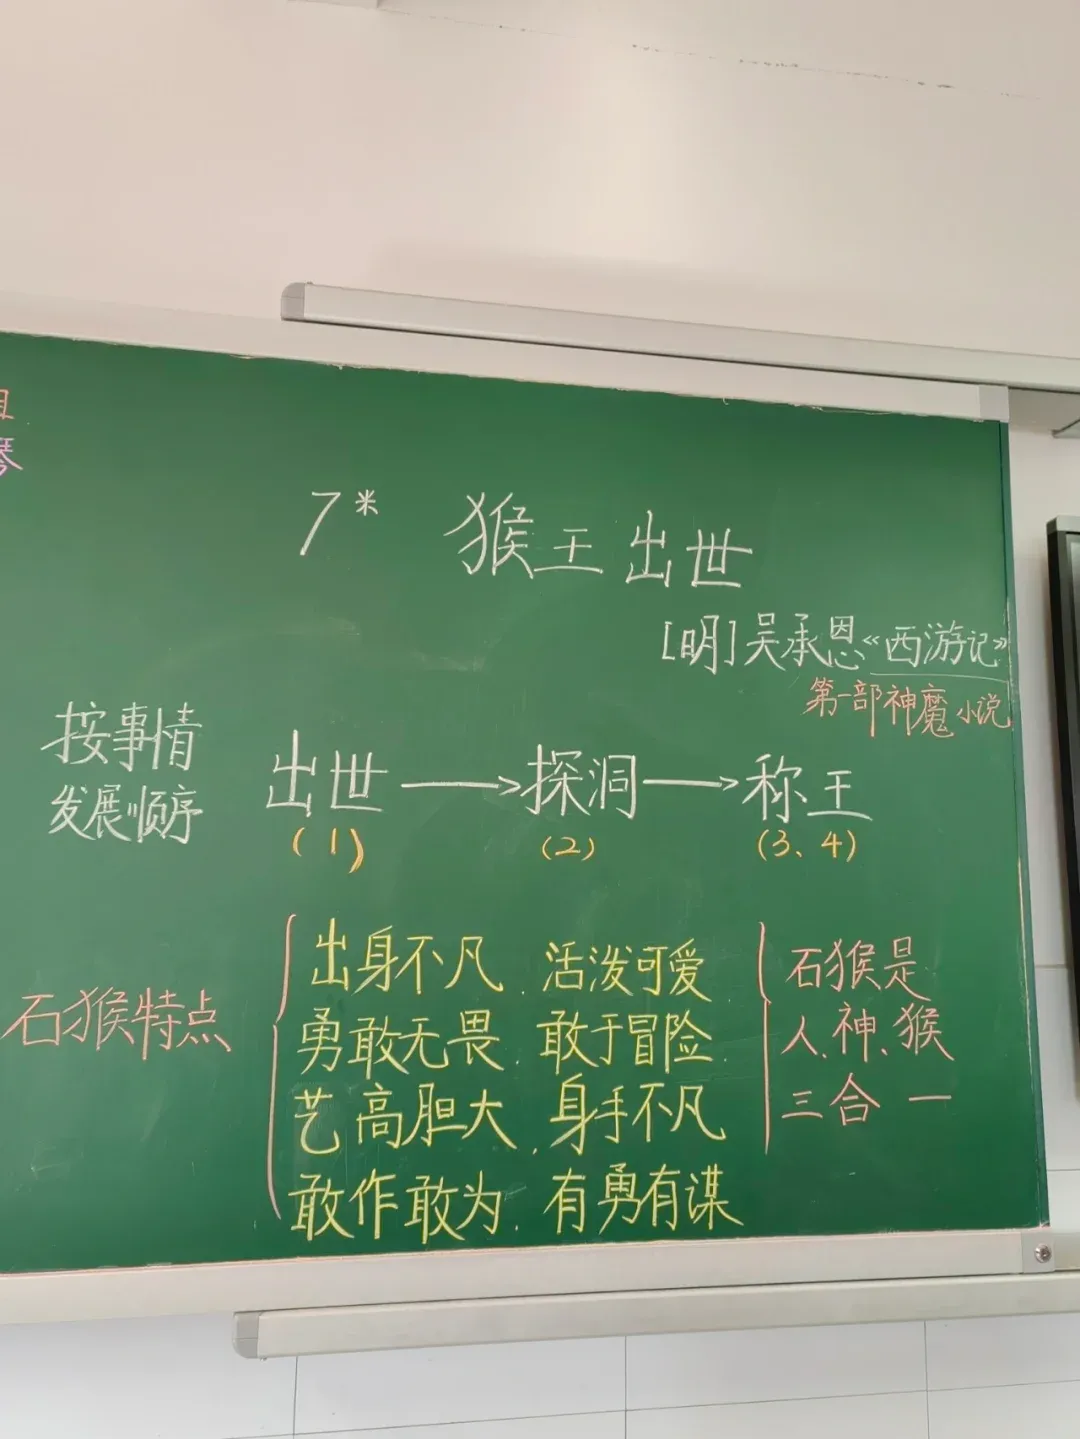 7* 猴王出世
[明]吴承恩《西游记》
第一部神魔小说
按事情
发展顺序
出世→探洞→称王
(1) (2) (3、4)
石猴特点
出身不凡、活泼可爱
勇敢无畏、敢于冒险
艺高胆大、身手不凡
敢作敢为、有勇有谋
石猴是
人、神、猴
三合一